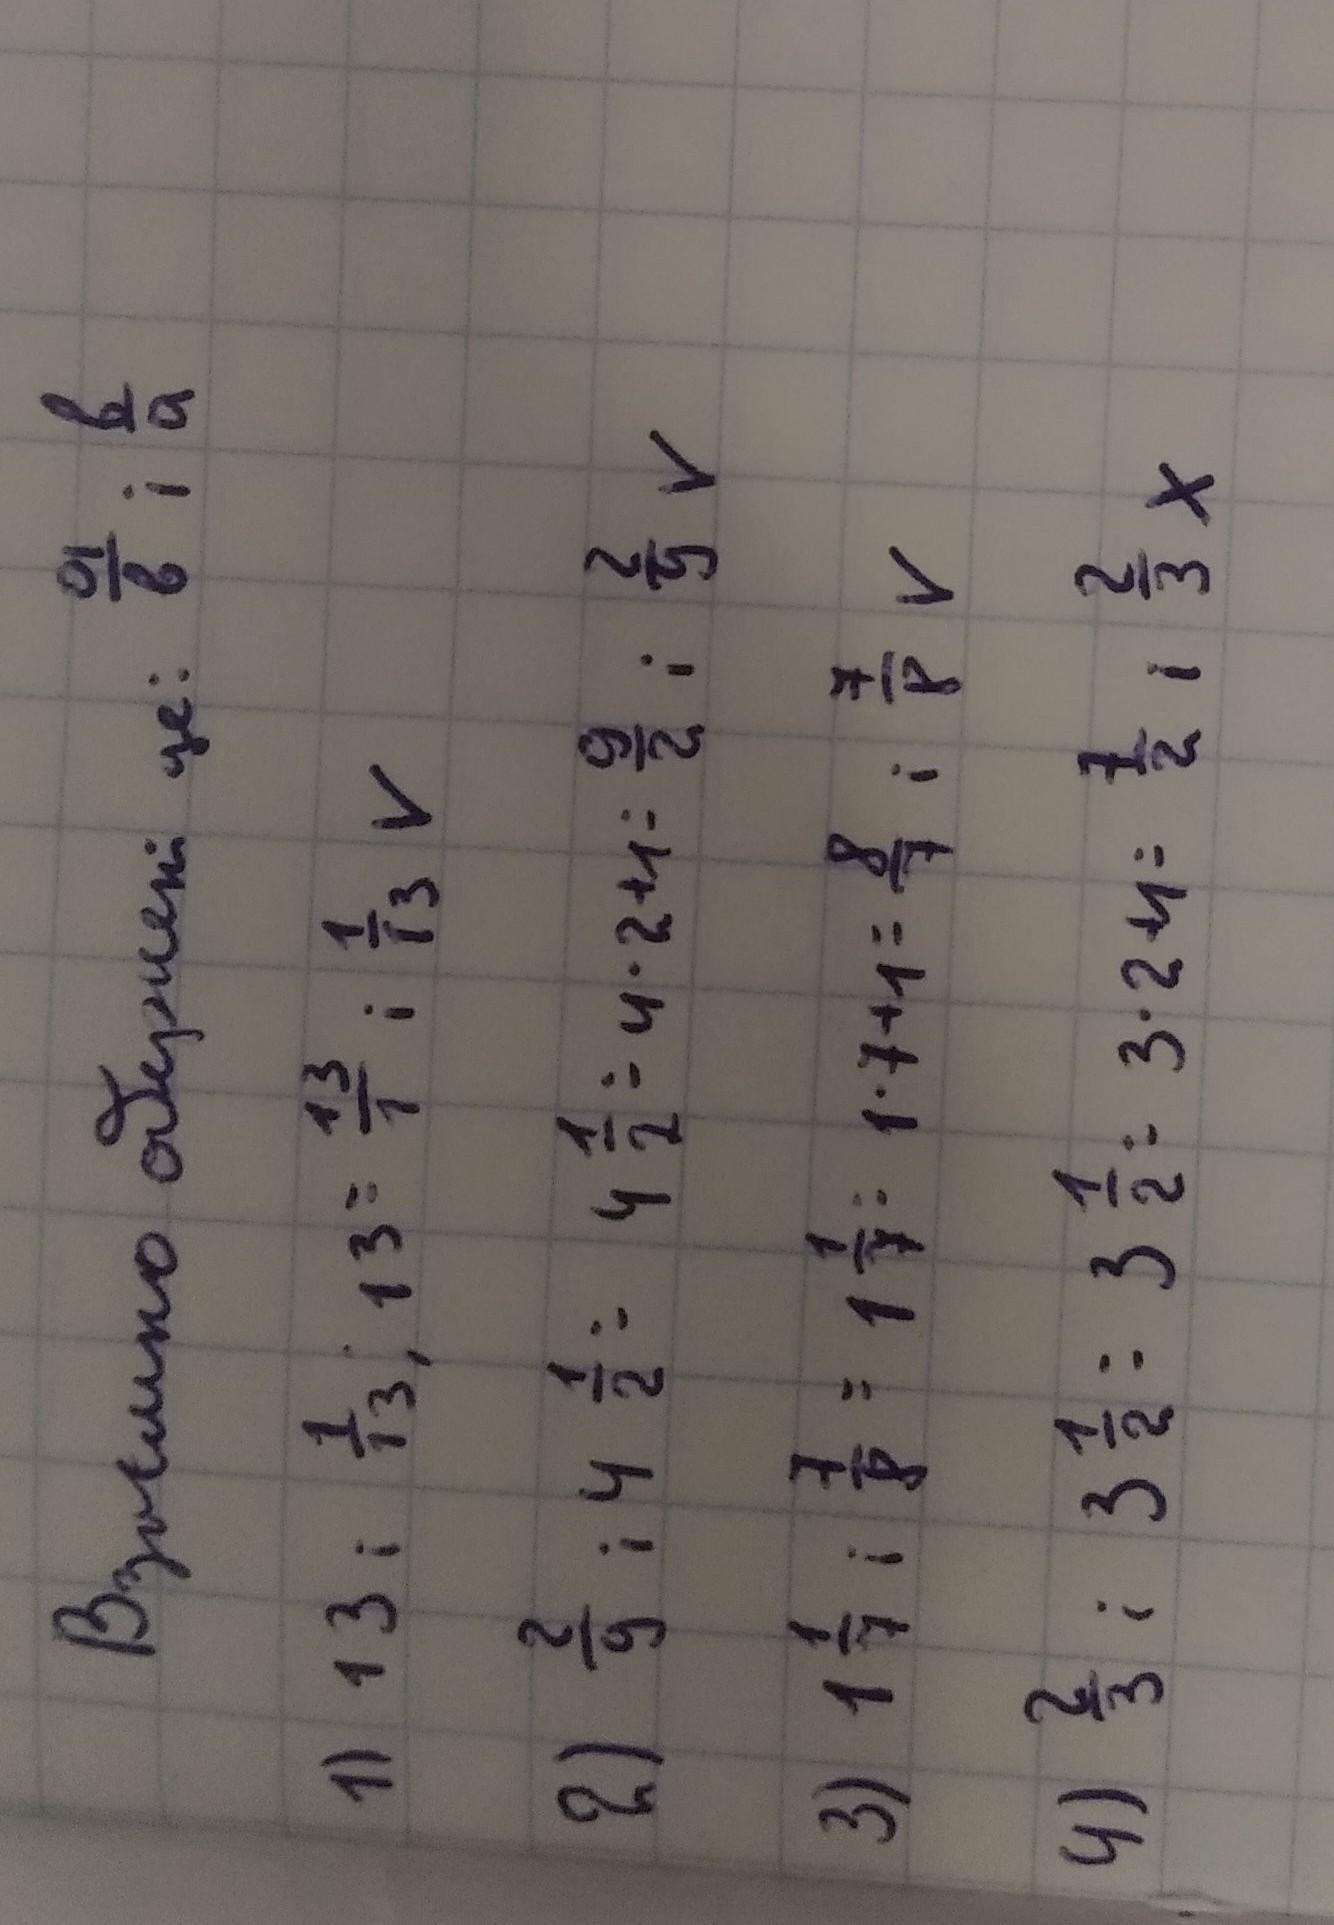 Взаємно обернені це: a/b і b/a
1) 13 і 1/13, 13 = 13/1 і 1/13 V
2) 2/9 і 4 1/2 = 4 1/2 = 4·2+1 = 9/2 і 2/9 V
3) 1 1/7 і 7/8 = 1 1/7 = 1·7+1 = 8/7 і 7/8 V
4) 2/3 і 3 1/2 = 3 1/2 = 3·2+1 = 7/2 і 2/3 X